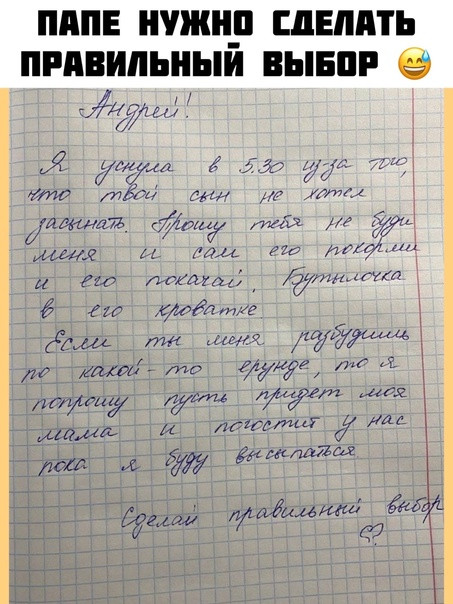 ПАПЕ НУЖНО СДЕЛАТЬ
ПРАВИЛЬНЫЙ ВЫБОР 😅
Андрей!
Я уснула в 5.30 из-за того,
что твой сын не хотел
засыпать. Прошу тебя не буди
меня и сам его покорми
и его покачай. Бутылочка
в его кроватке
Если ты меня разбудишь
по какой-то ерунде, то я
попрошу пусть придет моя
мама и погостит у нас
пока я буду высыпаться
Сделай правильный выбор
♡